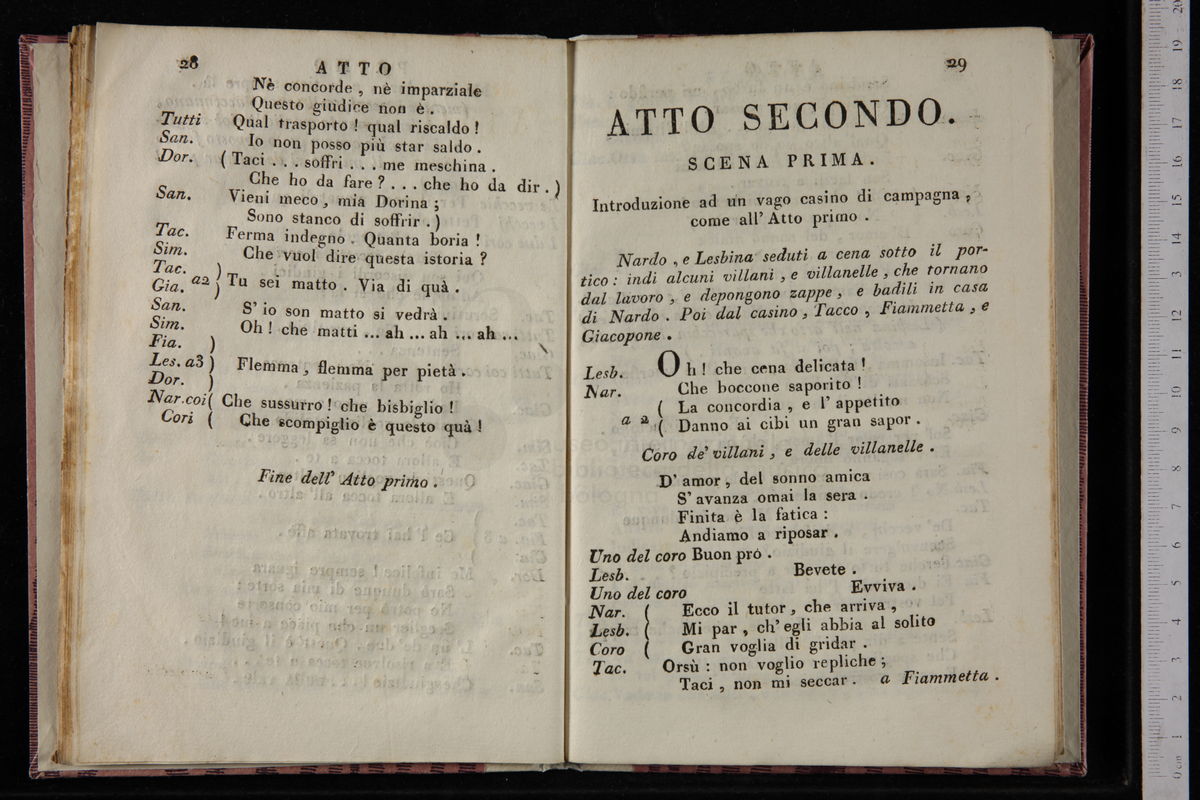 28
ATTO
Nè concorde , nè imparziale
Questo giudice non è .
Tutti Qual trasporto ! qual riscaldo !
San. Io non posso più star saldo .
Dor. ( Taci . . . soffri . . . me meschina .
Che ho da fare ? . . . che ho da dir . )
San. Vieni meco , mia Dorina ;
Sono stanco di soffrir . )
Tac. Ferma indegno . Quanta boria !
Sim. Che vuol dire questa istoria ?
Tac. )
Gia. a2 ) Tu sei matto . Via di quà .
San. S' io son matto si vedrà .
Sim. Oh ! che matti ... ah ... ah ... ah ...
Fia. )
Les. a3 ) Flemma , flemma per pietà .
Dor. )
Nar. coi ( Che sussurro ! che bisbiglio !
Cori ( Che scompiglio è questo quà !
Fine dell' Atto primo .
29
ATTO SECONDO.
SCENA PRIMA.
Introduzione ad un vago casino di campagna ,
come all' Atto primo .
Nardo , e Lesbina seduti a cena sotto il por-
tico : indi alcuni villani , e villanelle , che tornano
dal lavoro , e depongono zappe , e badili in casa
di Nardo . Poi dal casino , Tacco , Fiammetta , e
Giacopone .
Lesb. Oh ! che cena delicata !
Nar. Che boccone saporito !
( La concordia , e l' appetito
a 2 ( Danno ai cibi un gran sapor .
Coro de' villani , e delle villanelle .
D' amor , del sonno amica
S' avanza omai la sera .
Finita è la fatica :
Andiamo a riposar .
Uno del coro Buon prò .
Lesb. Bevete .
Uno del coro Evviva .
Nar. ( Ecco il tutor , che arriva ,
Lesb. ( Mi par , ch' egli abbia al solito
Coro ( Gran voglia di gridar .
Tac. Orsù : non voglio repliche ;
Taci , non mi seccar . a Fiammetta .